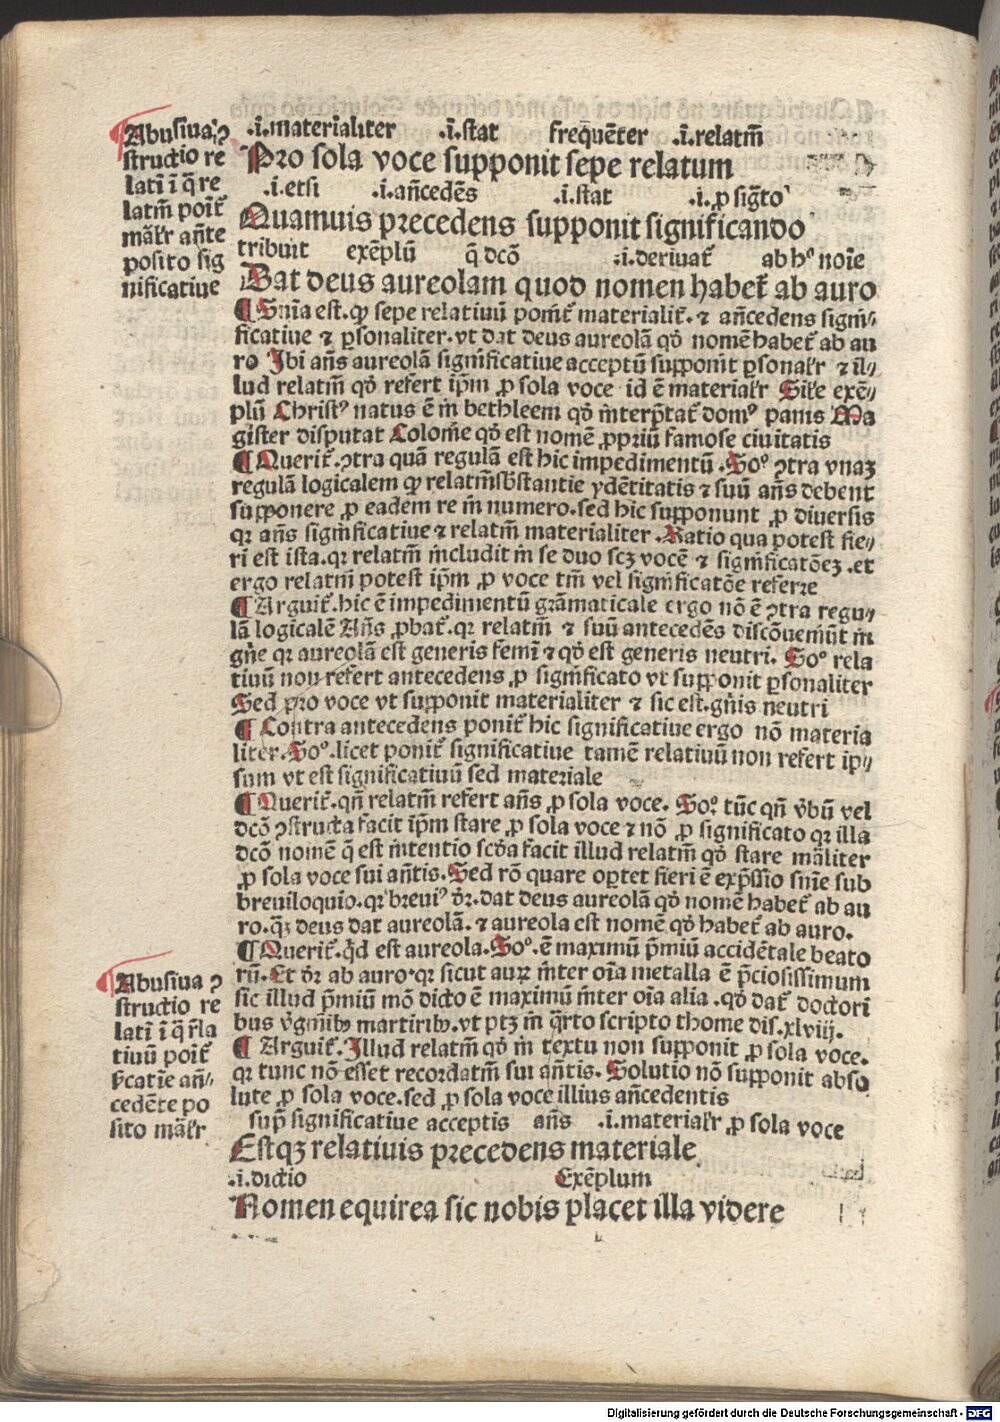 Abusiua ꝯ
structio re
latiui ī q̄ re
latm̄ poīt̄
mālr̄ añte
posito sig
nificatiue
.i.materialiter .i.stat frequēter .i.relatm̄
Pro sola voce supponit sepe relatum
.i.etsi .i.añcedēs .i.stat .i. ꝓ sig̅to
Quamuis precedens supponit significando
tribuit exēplū q̄ dcō .i.deriuat̄ ab hꝰ noīe
Dat deus aureolam quod nomen habet̄ ab auro
¶ Snīa est. ꝙ sepe relatiuū ponit̄ materialit̄. ⁊ añcedens signi⸗
ficatiue ⁊ ꝑsonaliter. vt dat deus aureolā qḋ nomē habet̄ ab au
ro Ibi añs aureolā significatiue acceptū supponit ꝑsonalr̄ ⁊ il⸗
lud relatm̄ qḋ refert ip̄m ꝓ sola voce id ē materialr̄ Sil̄e exē⸗
plū Christꝰ natus ē in bethleem qḋ interp̄tat̄ domꝰ panis Ma
gister disputat Colonie qḋ est nomē ꝓpriū famose ciuitatis
¶ Querit̄. ꝯtra quā regulā est hic impedimentū. Soꝰ ꝯtra vnaꝫ
regulā logicalem ꝙ relatm̄ sbstantie ydētitatis ⁊ suū añs debent
supponere ꝓ eadem re in numero. sed hic supponunt ꝓ diuersis
qꝛ añs significatiue ⁊ relatm̄ materialiter. Ratio qua potest fie⸗
ri est ista. qꝛ relatm̄ includit in se duo scꝫ vocē ⁊ significatōeꝫ. et
ergo relatm̄ potest ip̄m ꝓ voce tm̄ vel significatōe referre
¶ Arguit̄. hic ē impedimentū grāmaticale ergo nō ē ꝯtra regu⸗
lā logicalē Añs ꝓbat̄. qꝛ relatm̄ ⁊ suū antecedēs discōueniūt in
gn̄e qꝛ aureolā est generis femī ⁊ qḋ est generis neutri. Soꝰ rela
tiuū non refert antecedens ꝓ significato vt supponit ꝑsonaliter
Sed pro voce vt supponit materialiter ⁊ sic est. gn̄is neutri
¶ Contra antecedens ponit̄ hic significatiue ergo nō materia
liter. Soꝰ. licet ponit̄ significatiue tamē relatiuū non refert ip⸗
sum vt est significatiuū sed materiale
¶ Querit̄. qñ relatm̄ refert añs ꝓ sola voce. Soꝰ tūc qñ v̄bū vel
dcō ꝯstructa facit ip̄m stare ꝓ sola voce ⁊ nō ꝓ significato qꝛ illa
dcō nomē q̄ est intentio scd̄a facit illud relatm̄ qḋ stare māliter
ꝓ sola voce sui añtis. Sed rō quare oꝑtet fieri ē exp̄ssio snīe sub
breuiloquio. qꝛ breuiꝰ dr̄. dat deus aureolā qḋ nomē habet̄ ab au
ro. qꝫ deus dat aureolā. ⁊ aureola est nomē qḋ habet̄ ab auro.
¶ Querit̄. qd̄ est aureola. Soꝰ. ē maximū p̄miū accidētale beato
rū. Et dr̄ ab auro. qꝛ sicut auꝝ inter oīa metalla ē p̄ciosissimum
sic illud p̄miū mō dicto ē maximū inter oīa alia. qḋ dat̄ doctori
bus v̄ginibꝫ martiribꝫ. vt ptꝫ in q̄rto scripto thome dis. xlviij.
Abusiua ꝯ
structio re
latiui ī q̄ rela
tiuū poīt̄
sc̄atīe añ⸗
cedēte po
sito mālr̄
¶ Arguit̄. Illud relatm̄ qḋ in textu non supponit ꝓ sola voce.
qꝛ tunc nō esset recordatm̄ sui añtis. Solutio nō supponit abso
lute ꝓ sola voce. sed ꝓ sola voce illius añcedentis
sup̄ significatiue acceptis añs .i.materialr̄ ꝓ sola voce
Estqꝫ relatiuis precedens materiale
.i.dictio Exēplum
Nomen equirea sic nobis placet illa videre
Digitalisierung gefördert durch die Deutsche Forschungsgemeinschaft - DFG